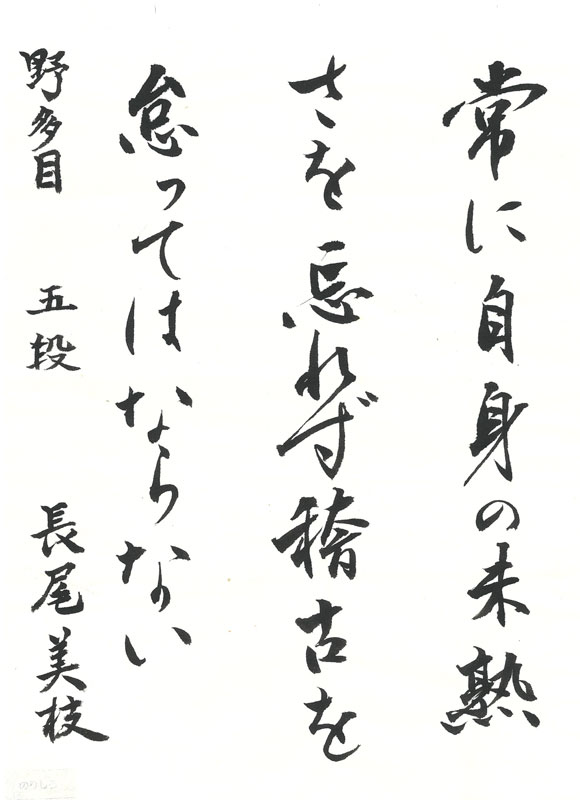 常に自身の未熟
さを忘れず稽古を
怠ってはならない
野多目 五段 長尾美枝
のりしろ